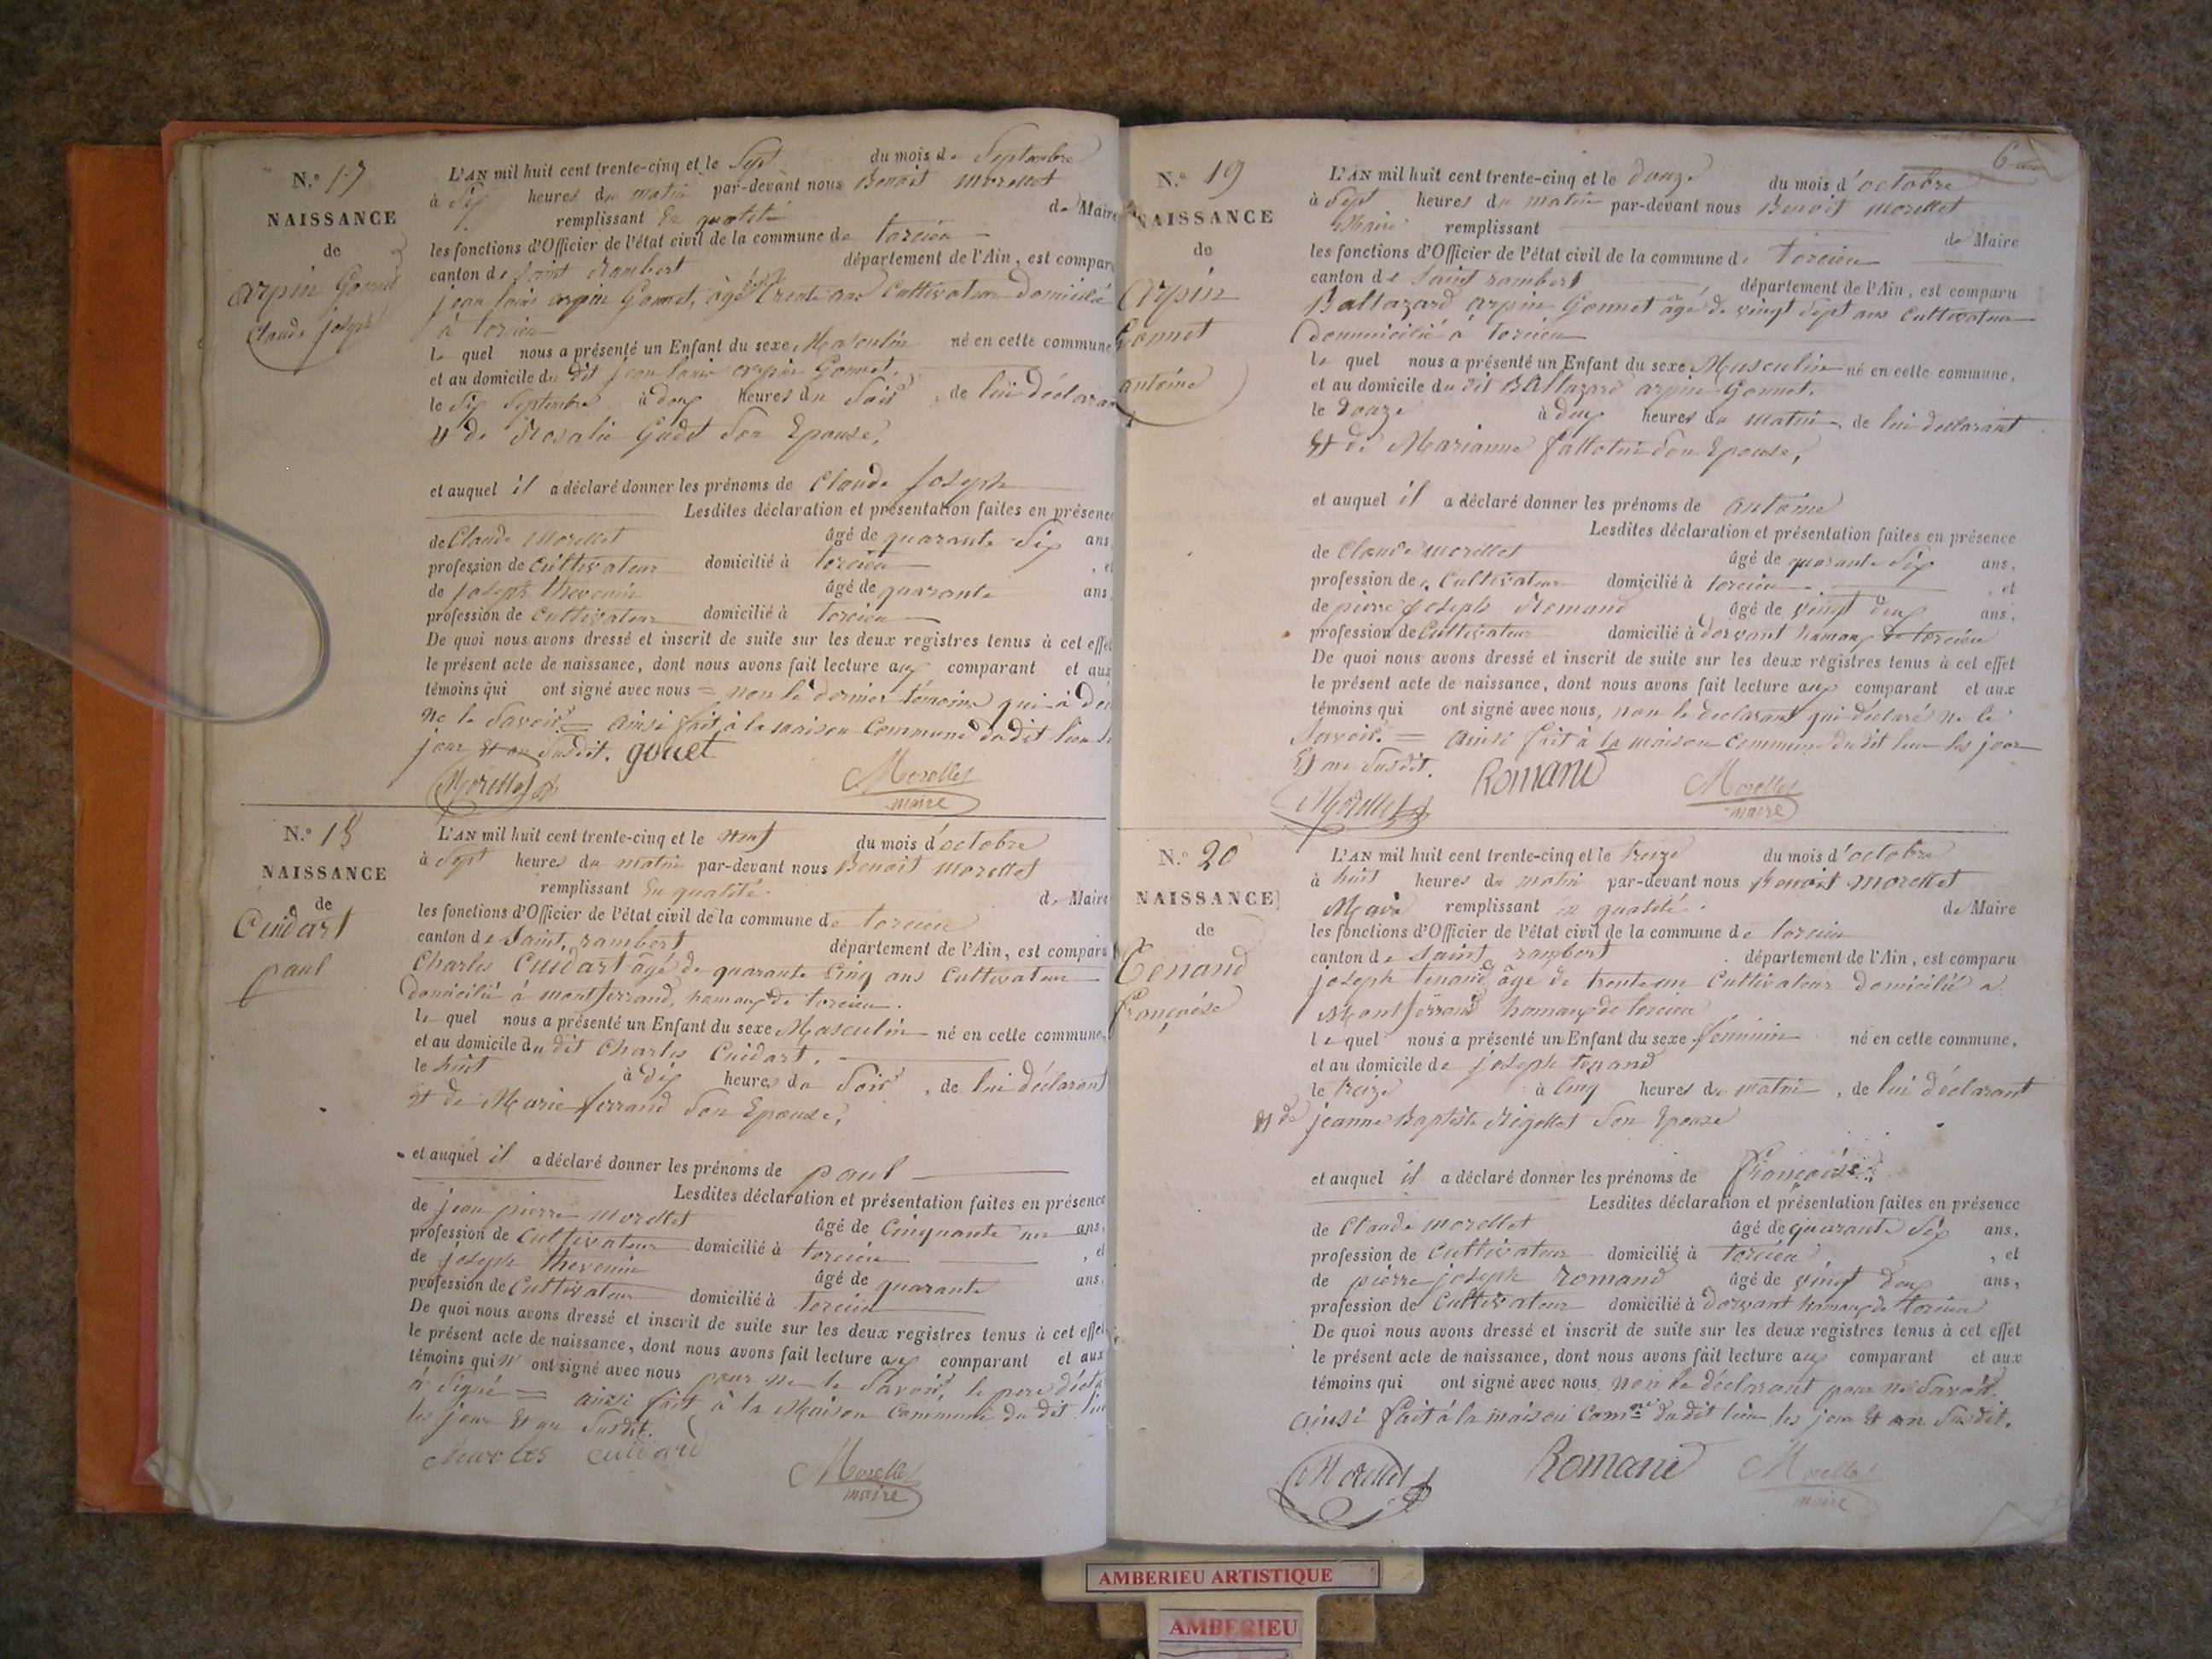 N.º 17
NAISSANCE
de
arpin Gonnet
Claude joseph
L'AN mil huit cent trente-cinq et le Sept du mois de Septembre
à Six heures du matin par-devant nous Benoit morellet
remplissant En qualité de Maire
les fonctions d'Officier de l'état civil de la commune de torcieu
canton de Saint Rambert département de l'Ain, est comparu
jean louis arpin Gonnet, âgé trente ans Cultivateur domicilié
à torcieu
le quel nous a présenté un Enfant du sexe Masculin né en cette commune
et au domicile du dit jean louis arpin Gonnet,
le Six Septembre à deux heures du Soir, de lui déclarant
et de Rosalie Gudet Son Epouse,
et auquel il a déclaré donner les prénoms de Claude joseph
Lesdites déclaration et présentation faites en présence
de Claude morellet âgé de quarante Six ans
profession de Cultivateur domicilié à torcieu, et
de joseph thevenin âgé de quarante ans
profession de Cultivateur domicilié à torcieu
De quoi nous avons dressé et inscrit de suite sur les deux registres tenus à cet effet
le présent acte de naissance, dont nous avons fait lecture aux comparant et aux
témoins qui ont signé avec nous = non le dernier témoins qui à dé
ne le Savoir = ainsi fait à la maison Commune du dit lieu le
jour et an Susdit. gonet
Morellet
Morellet
maire
N.º 18
NAISSANCE
de
Cuidart
paul
L'AN mil huit cent trente-cinq et le neuf du mois d'octobre
à Sept heures du matin par-devant nous Benoit morellet
remplissant En qualité de Maire
les fonctions d'Officier de l'état civil de la commune de torcieu
canton de Saint, rambert département de l'Ain, est comparu
Charles Cuidart âgé de quarante Cinq ans Cultivateur
domicilié à montferrand, hamaux de torcieu.
le quel nous a présenté un Enfant du sexe Masculin né en cette commune,
et au domicile du dit Charles Cuidart.
le huit à dix heures du Soir, de lui déclarant
et de Marie ferrand Son Epouse,
et auquel il a déclaré donner les prénoms de paul
Lesdites déclaration et présentation faites en présence
de jean pierre morellet âgé de Cinquante un ans,
profession de Cultivateur domicilié à torcieu, et
de joseph thevenin âgé de quarante ans,
profession de Cultivateur domicilié à torcieu
De quoi nous avons dressé et inscrit de suite sur les deux registres tenus à cet effet
le présent acte de naissance, dont nous avons fait lecture aux comparant et aux
témoins qui n' ont signé avec nous pour ne le Savoir, le pere décla
à Signé = ainsi fait à la Maison Commune du dit lieu
les jour et an Susdit.
charles cuidard
Morellet
maire
6
N.º 19
NAISSANCE
de
Arpin
Gonnet
antoine
L'AN mil huit cent trente-cinq et le douze du mois d'octobre
à Sept heures du matin par-devant nous Benoit morellet
Maire remplissant de Maire
les fonctions d'Officier de l'état civil de la commune de torcieu
canton de Saint rambert département de l'Ain, est comparu
Baltazard arpin Gonnet âgé de vingt Sept ans Cultivateur
domicilié à torcieu
le quel nous a présenté un Enfant du sexe Masculin né en cette commune,
et au domicile du dit Baltazard arpin Gonnet.
le douze à deux heures du matin, de lui declarant
Et de Marianne fallotin Son Epouse,
et auquel il a déclaré donner les prénoms de antoine
Lesdites déclaration et présentation faites en présence
de Claude morellet âgé de quarante Six ans,
profession de Cultivateur domicilié à torcieu, et
de pierre joseph Romand âgé de vingt deux ans,
profession de Cultivateur domicilié à dorvant hamaux de torcieu
De quoi nous avons dressé et inscrit de suite sur les deux régistres tenus à cet effet
le présent acte de naissance, dont nous avons fait lecture aux comparant et aux
témoins qui ont signé avec nous, non le declarant qui déclaré ne le
Savoir. = ainsi fait à la maison Commune du dit lieu les jour
Et an Susdit.
Romand
Morellet
Morellet
maire
N.º 20
NAISSANCE
de
Tenand
françoise
L'AN mil huit cent trente-cinq et le treize du mois d'octobre
à huit heures du matin par-devant nous Benoit morellet
Maire remplissant en qualité. de Maire
les fonctions d'Officier de l'état civil de la commune de torcieu
canton de Saint rambert département de l'Ain, est comparu
joseph tenand, âgé de trente un Cultivateur domicilié a
Montferrand hamaux de torcieu
le quel nous a présenté un Enfant du sexe féminin né en cette commune,
et au domicile de joseph tenand
le treize à Cinq heures du matin, de lui déclarant
et de jeanne Baptiste Rigollet Son Epouse
et auquel il a déclaré donner les prénoms de françoise
Lesdites déclaration et présentation faites en présence
de Claude morellet âgé de quarante Six ans,
profession de Cultivateur domicilié à torcieu, et
de pierre joseph romand âgé de vingt deux ans,
profession de Cultivateur domicilié à dorvant hamaux de torcieu
De quoi nous avons dressé et inscrit de suite sur les deux registres tenus à cet effet
le présent acte de naissance, dont nous avons fait lecture aux comparant et aux
témoins qui ont signé avec nous non le déclarant pour ne Savoir.
ainsi fait à la maison Comne du dit lieu les jour et an Susdit.
Morellet
Romand
Morellet
maire
AMBERIEU ARTISTIQUE
AMBERIEU